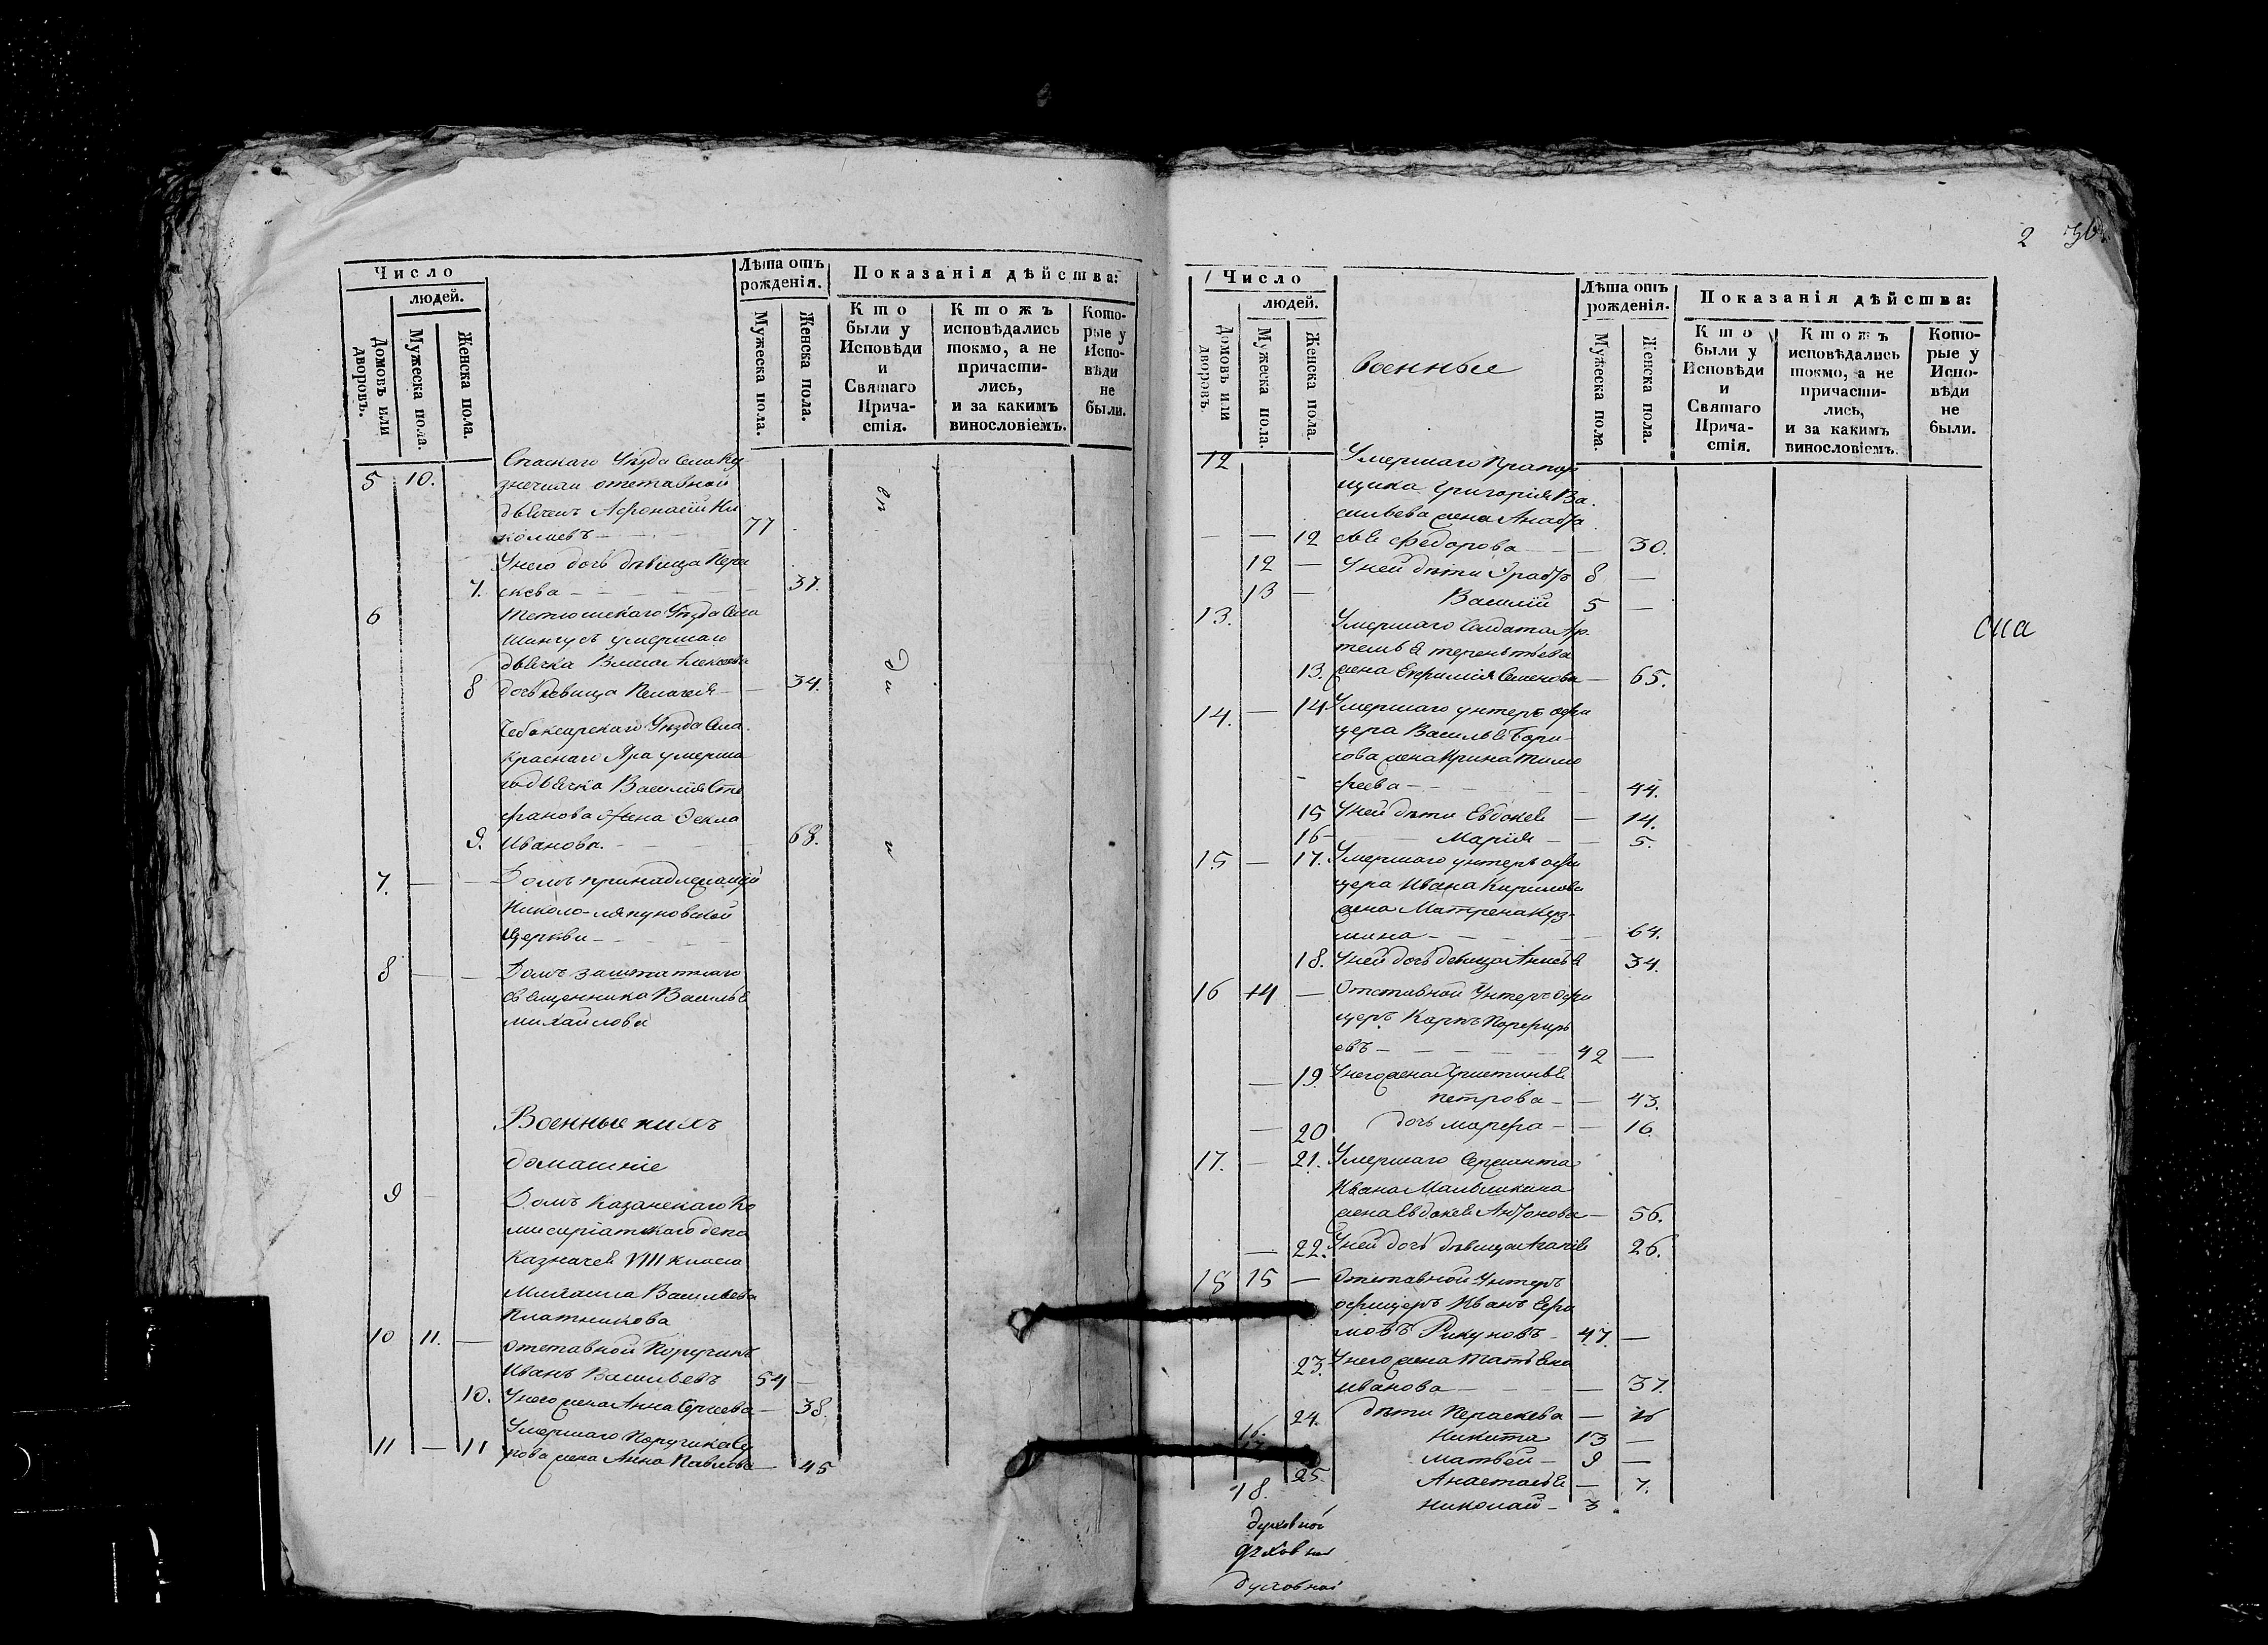 Число
людей.
Домовъ или дворовъ.
Мужеска пола.
Женска пола.
Лѣта отъ рожденія.
Мужеска пола.
Женска пола.
Показанія дѣйства:
Кто были у Исповѣди и Святаго Прича-стія.
Ктожъ исповѣдались токмо, а не причасти-лись, и за какимъ винословіемъ.
Кото-рые у Испо-вѣди не были.
Спаскаго Уѣзда Села Ку
5 10. знечихи отставной
дьячекъ Афонасій Ни
колаевъ 77
У него дочь дѣвица Пера
7. скева 37.
6 Тетюшскаго Уѣзда Села
умершаго
дьячка
8 дочь девица Пелагея 34.
Чебоксарскаго Уѣзда Села
Краснаго Яра умерша
го дьячка Василія Сте
фанова жена Фекла
9. Иванова. 68.
7. — — Домъ принадлежащій
Николо-ляпуновской
Церкви
8 — — Домъ заштатнаго
священника Василья
михайлова
Военные и ихъ
домашніе
9 — Домъ Казанскаго Ко
мисаріатскаго депо
Казначея VIII класса
Михаила Васильева
Плотникова
10 11. — отставной Поручикъ
Иванъ Васильевъ 54 —
10. У него жена Анна Сергеева 38.
Умершаго Поручика
11 — 11 жена Анна Павлова — 45
2
Число
людей.
Домовъ или дворовъ.
Мужеска пола.
Женска пола.
военные
Лѣта отъ рожденія.
Мужеска пола.
Женска пола.
Показанія дѣйства:
Кто были у Исповѣди и Святаго Прича-стія.
Ктожъ исповѣдались токмо, а не причасти-лись, и за какимъ винословіемъ.
Кото-рые у Испо-вѣди не были.
12 Умершаго Прапор
щика Григорія Ва
сильева жена
— — 12 Федорова — 30.
12 — У ней дѣти 8 —
13 — Василій 5 —
13. Умершаго Солдата Ар
темья терентьева
13. жена Ефимія Семенова — 65.
14. — 14 Умершаго унтеръ офи
цера Василья Бори
сова жена Ирина Тимо
феева — 44.
15 У ней дѣти Евдокея — 14.
16 Марія — 5.
15 — 17. Умершаго унтеръ офи
цера Ивана Кирилова
жена Матрена Куз
мина — 64.
18. У ней дочь девица Анисья 34.
16 14 — Отставной Унтеръ Офи
церъ Карпъ Порфирь
евъ 42 —
— 19. У него жена Христинья
петрова — 43.
— 20 дочь марфа — 16.
17. — 21. Умершаго Сержанта
Ивана
жена Евдокея Антонова — 56.
— 22. У ней дочь дѣвица Агапія 26.
18 15 — Отставной Унтеръ
офицеръ Иванъ Ефи
мовъ 47. —
23. У него жена Татьяна
иванова — 37.
24. дѣти Пераскева —
16. Никита 13 —
матвѣй 9 —
25. Анастасья — 7.
18. николай 3
сиа
духовной
духовной
духовной